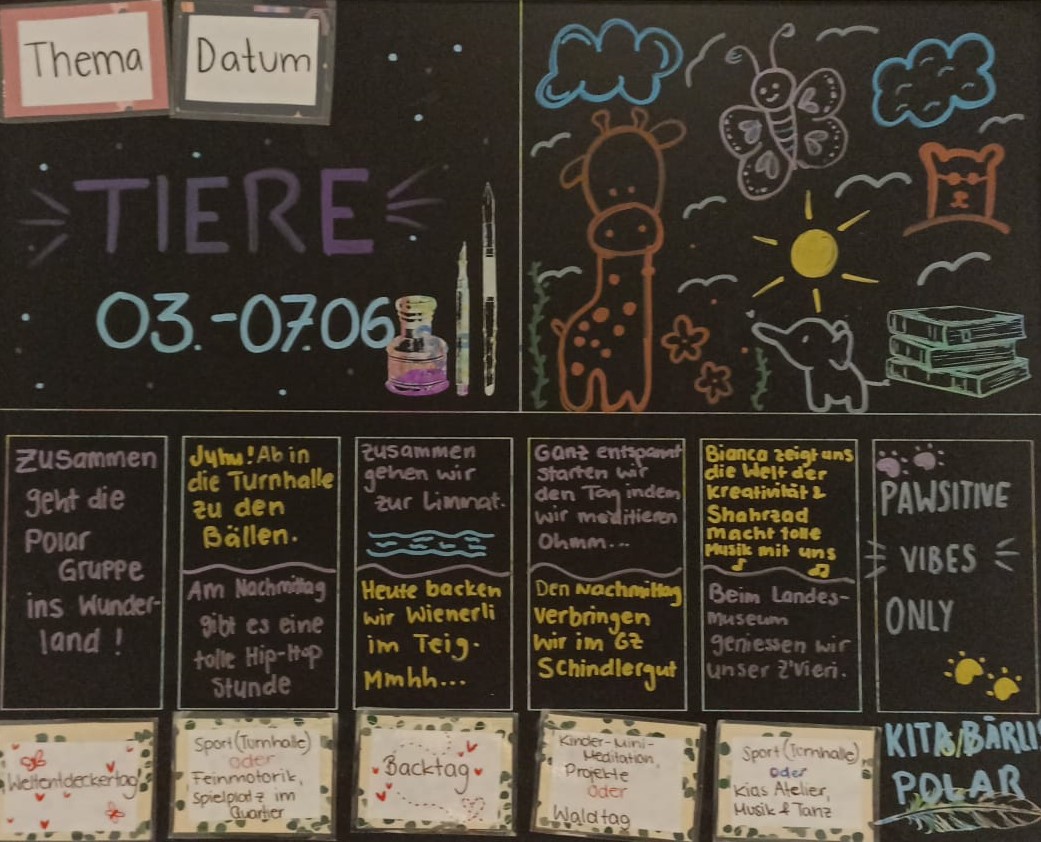 Thema
Datum
TIERE
03.-07.06
Zusammen
geht die
Polar
Gruppe
ins Wunder-
land!
Juhu! Ab in
die Turnhalle
zu den
Bällen.
Am Nachmittag
gibt es eine
tolle Hip-Hop
Stunde
Zusammen
gehen wir
zur Limmat.
Heute backen
wir Wienerli
im Teig.
Mmhh...
Ganz entspannt
starten wir
den Tag indem
wir meditieren
Ohmm...
Den Nachmittag
verbringen
wir im GZ
Schindlergut
Bianca zeigt uns
die Welt der
Kreativität &
Shahrzad
macht tolle
Musik mit uns
Beim Landes-
museum
geniessen wir
unser Z'Vieri.
PAWSITIVE
VIBES
ONLY
Weltentdeckertag
Sport (Turnhalle)
oder
Feinmotorik,
Spielplatz im
Quartier
Backtag
Kinder-Mini-
Meditation,
Projekte
oder
Waldtag
Sport (Turnhalle)
oder
Kias Atelier,
Musik & Tanz
KITA BÄRLI
POLAR